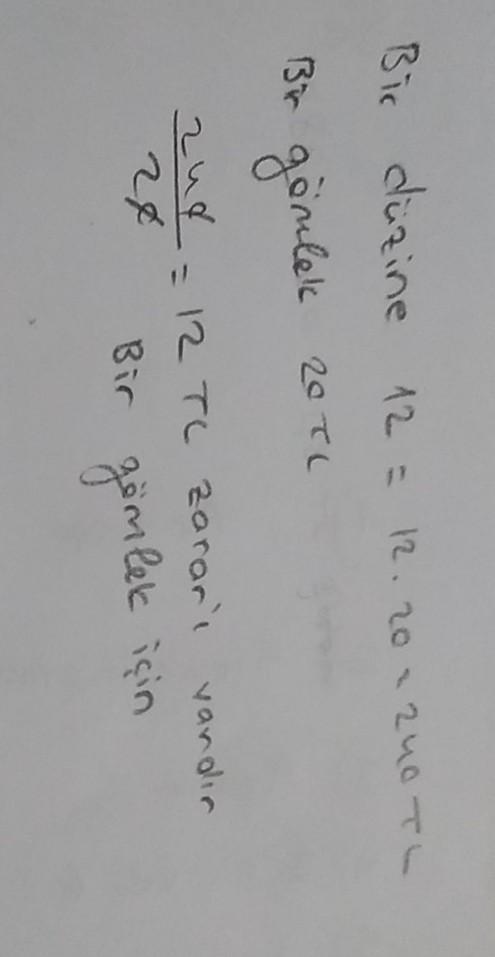 Bir düzine 12 = 12.20 = 240 TL
Bir gömlek 20 TL
240/20 = 12 TL zarar'ı vardır
Bir gömlek için